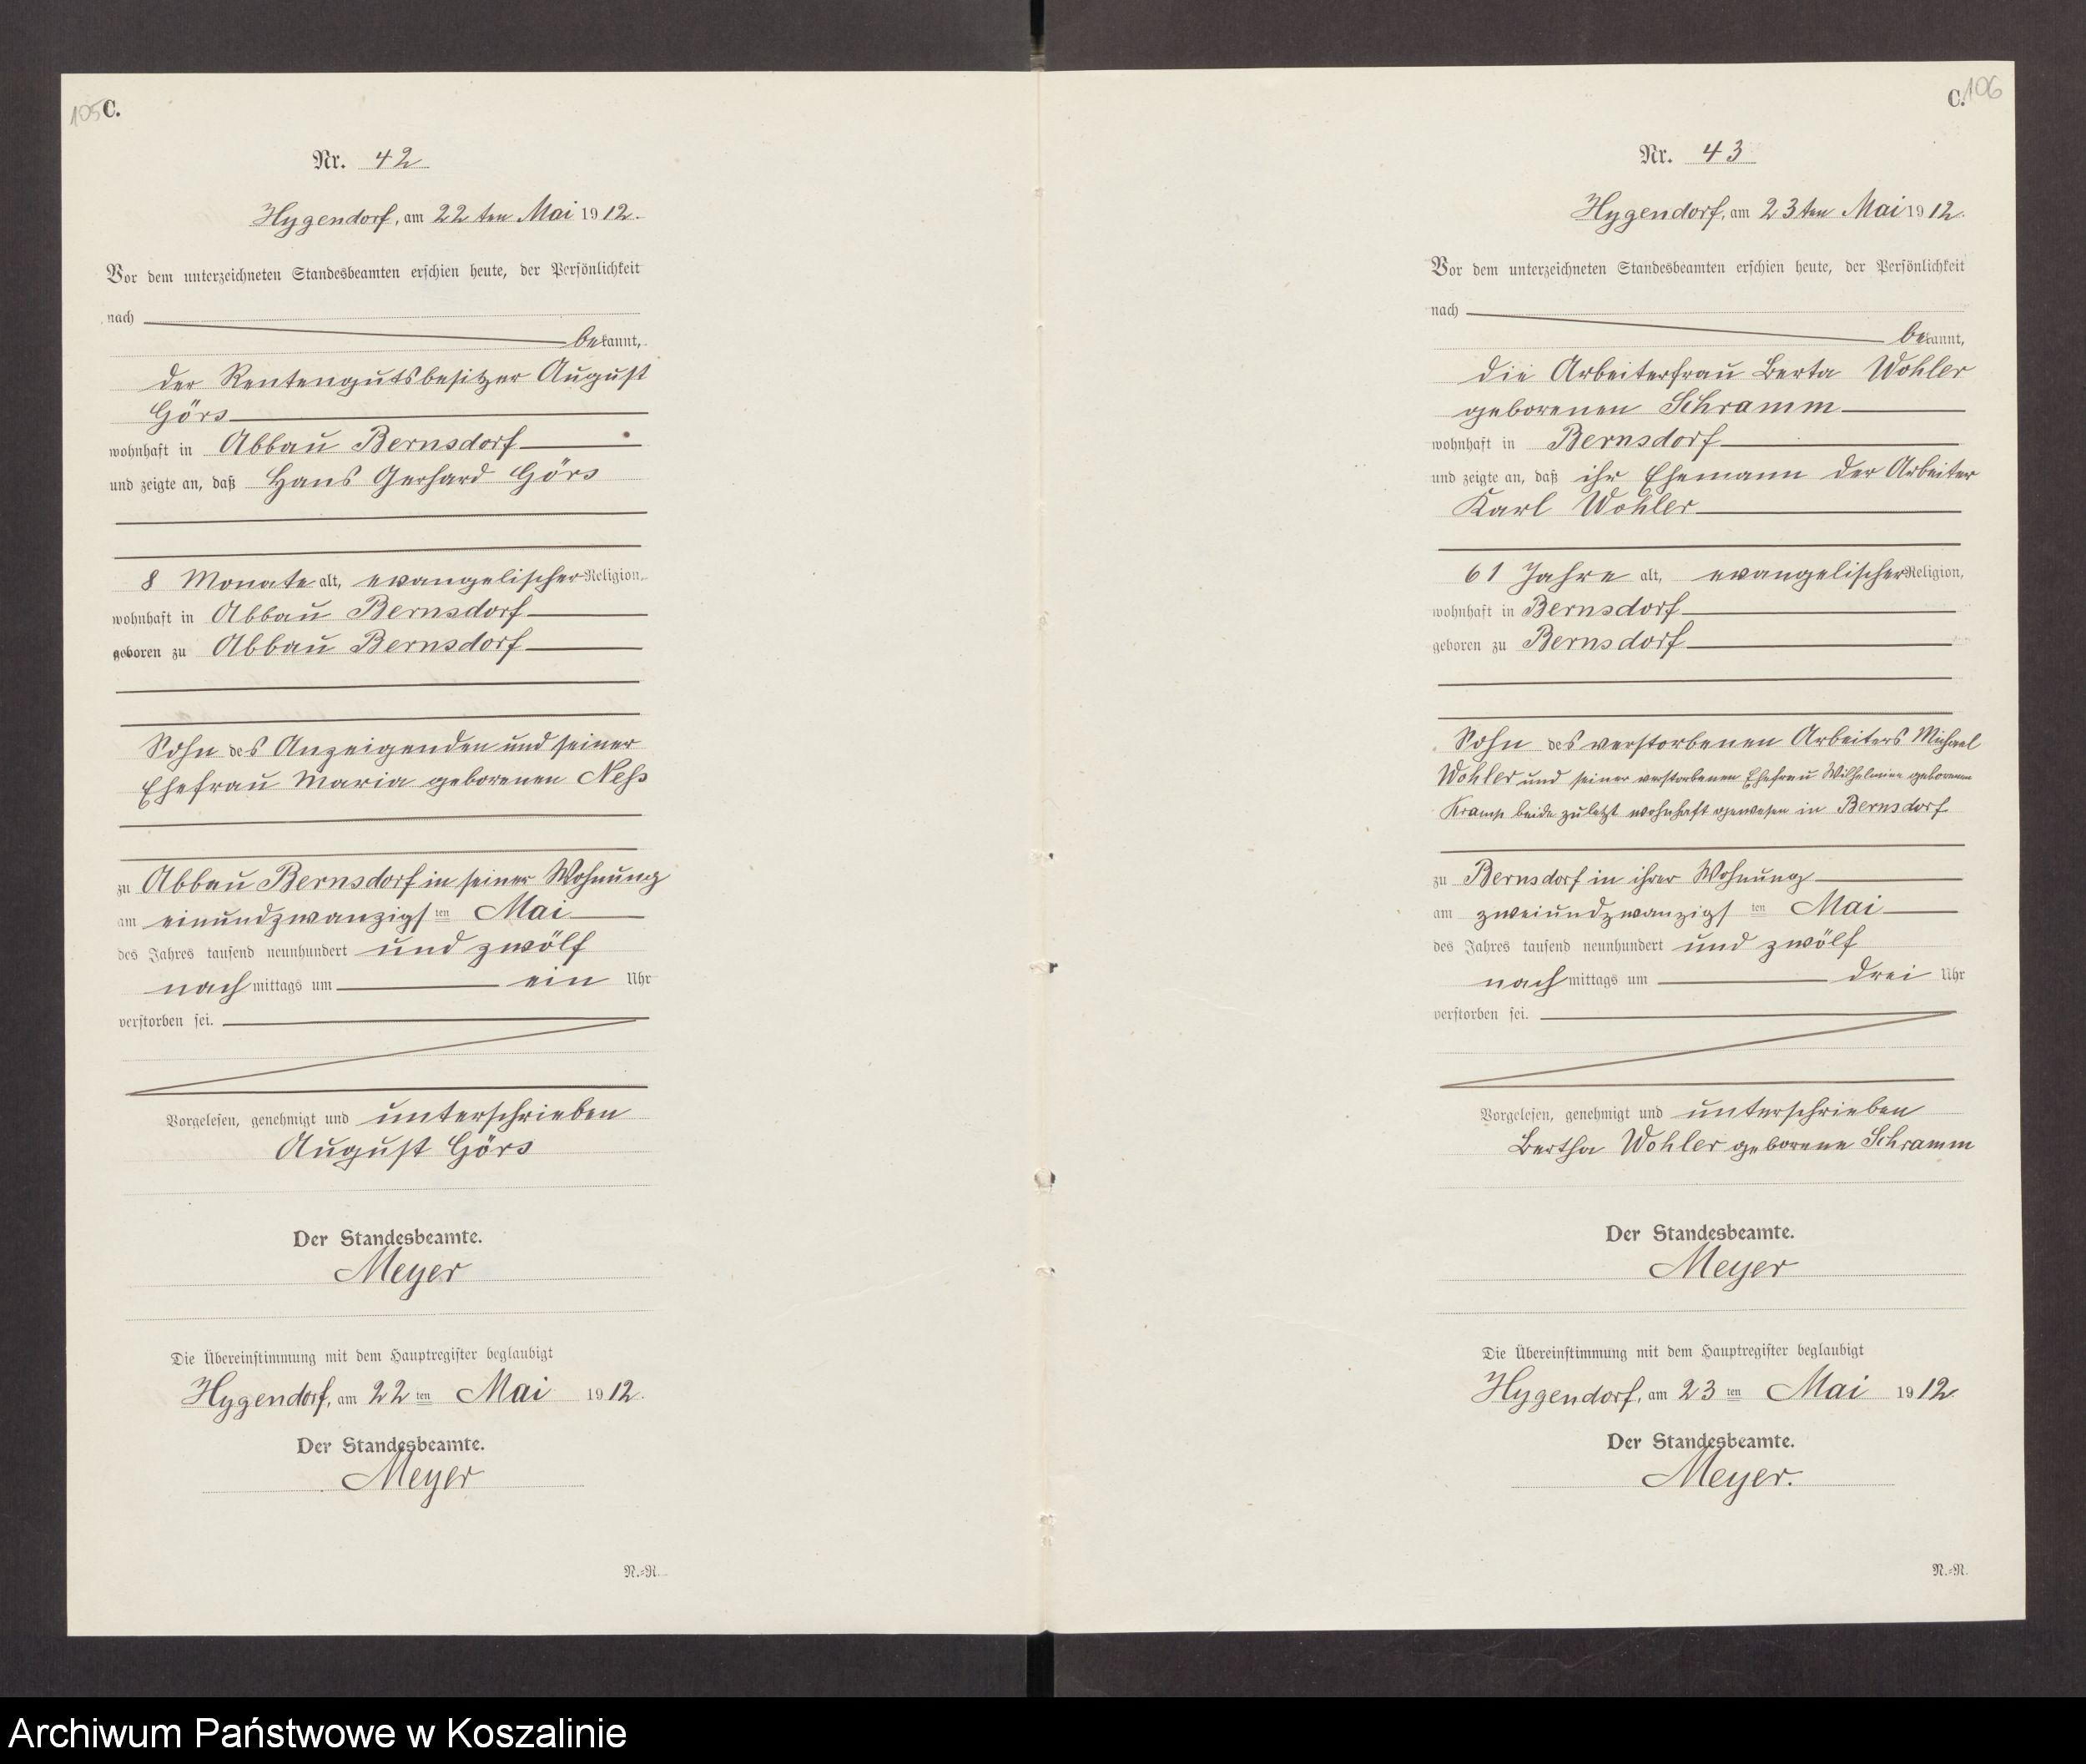 105 C.
Nr. 42
Hygendorf, am 22ten Mai 1912.
Vor dem unterzeichneten Standesbeamten erschien heute, der Persönlichkeit
nach
bekannt,
der Rentengutsbesitzer August
Görs
wohnhaft in Abbau Bernsdorf
und zeigte an, daß Hans Gerhard Görs
8 Monate alt, evangelischer Religion,
wohnhaft in Abbau Bernsdorf
geboren zu Abbau Bernsdorf
Sohn des Anzeigenden und seiner
Ehefrau Maria geborenen Neß
zu Abbau Bernsdorf in seiner Wohnung
am einundzwanzigsten Mai
des Jahres tausend neunhundert und zwölf
nachmittags um ein Uhr
verstorben sei.
Vorgelesen, genehmigt und unterschrieben
August Görs
Der Standesbeamte.
Meyer
Die Übereinstimmung mit dem Hauptregister beglaubigt
Hygendorf, am 22ten Mai 1912.
Der Standesbeamte.
Meyer
N.=N.
C. 106
Nr. 43
Hygendorf, am 23ten Mai 1912.
Vor dem unterzeichneten Standesbeamten erschien heute, der Persönlichkeit
nach
bekannt,
die Arbeiterfrau Berta Wohler
geborenen Schramm
wohnhaft in Bernsdorf
und zeigte an, daß ihr Ehemann der Arbeiter
Karl Wohler
61 Jahre alt, evangelischer Religion,
wohnhaft in Bernsdorf
geboren zu Bernsdorf
Sohn des verstorbenen Arbeiters Michael
Wohler und seiner verstorbenen Ehefrau Wilhelmine geborenen
Kramp beide zuletzt wohnhaft gewesen in Bernsdorf
zu Bernsdorf in ihrer Wohnung
am zweiundzwanzigsten Mai
des Jahres tausend neunhundert und zwölf
nachmittags um drei Uhr
verstorben sei.
Vorgelesen, genehmigt und unterschrieben
Bertha Wohler geborene Schramm
Der Standesbeamte.
Meyer
Die Übereinstimmung mit dem Hauptregister beglaubigt
Hygendorf, am 23ten Mai 1912
Der Standesbeamte.
Meyer.
N.=N.
Archiwum Państwowe w Koszalinie